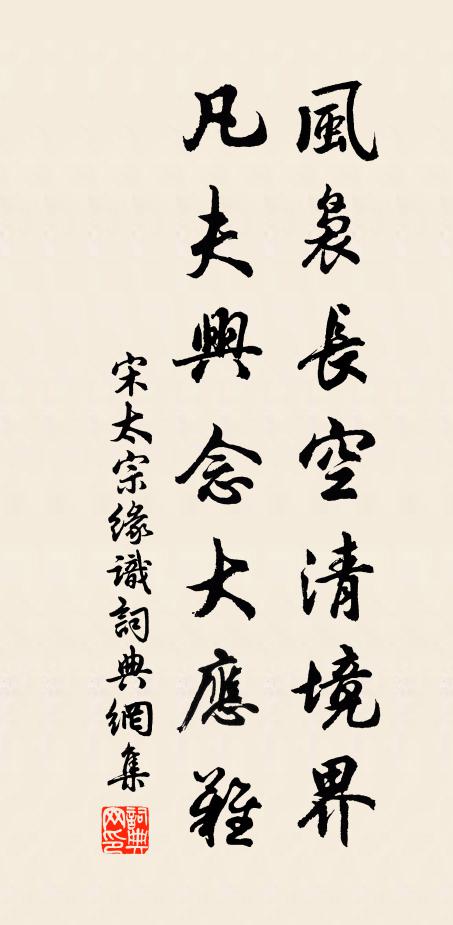 風裊長空清境界
凡夫興念大應難
宋太宗緣識詞典網集
詞典网印